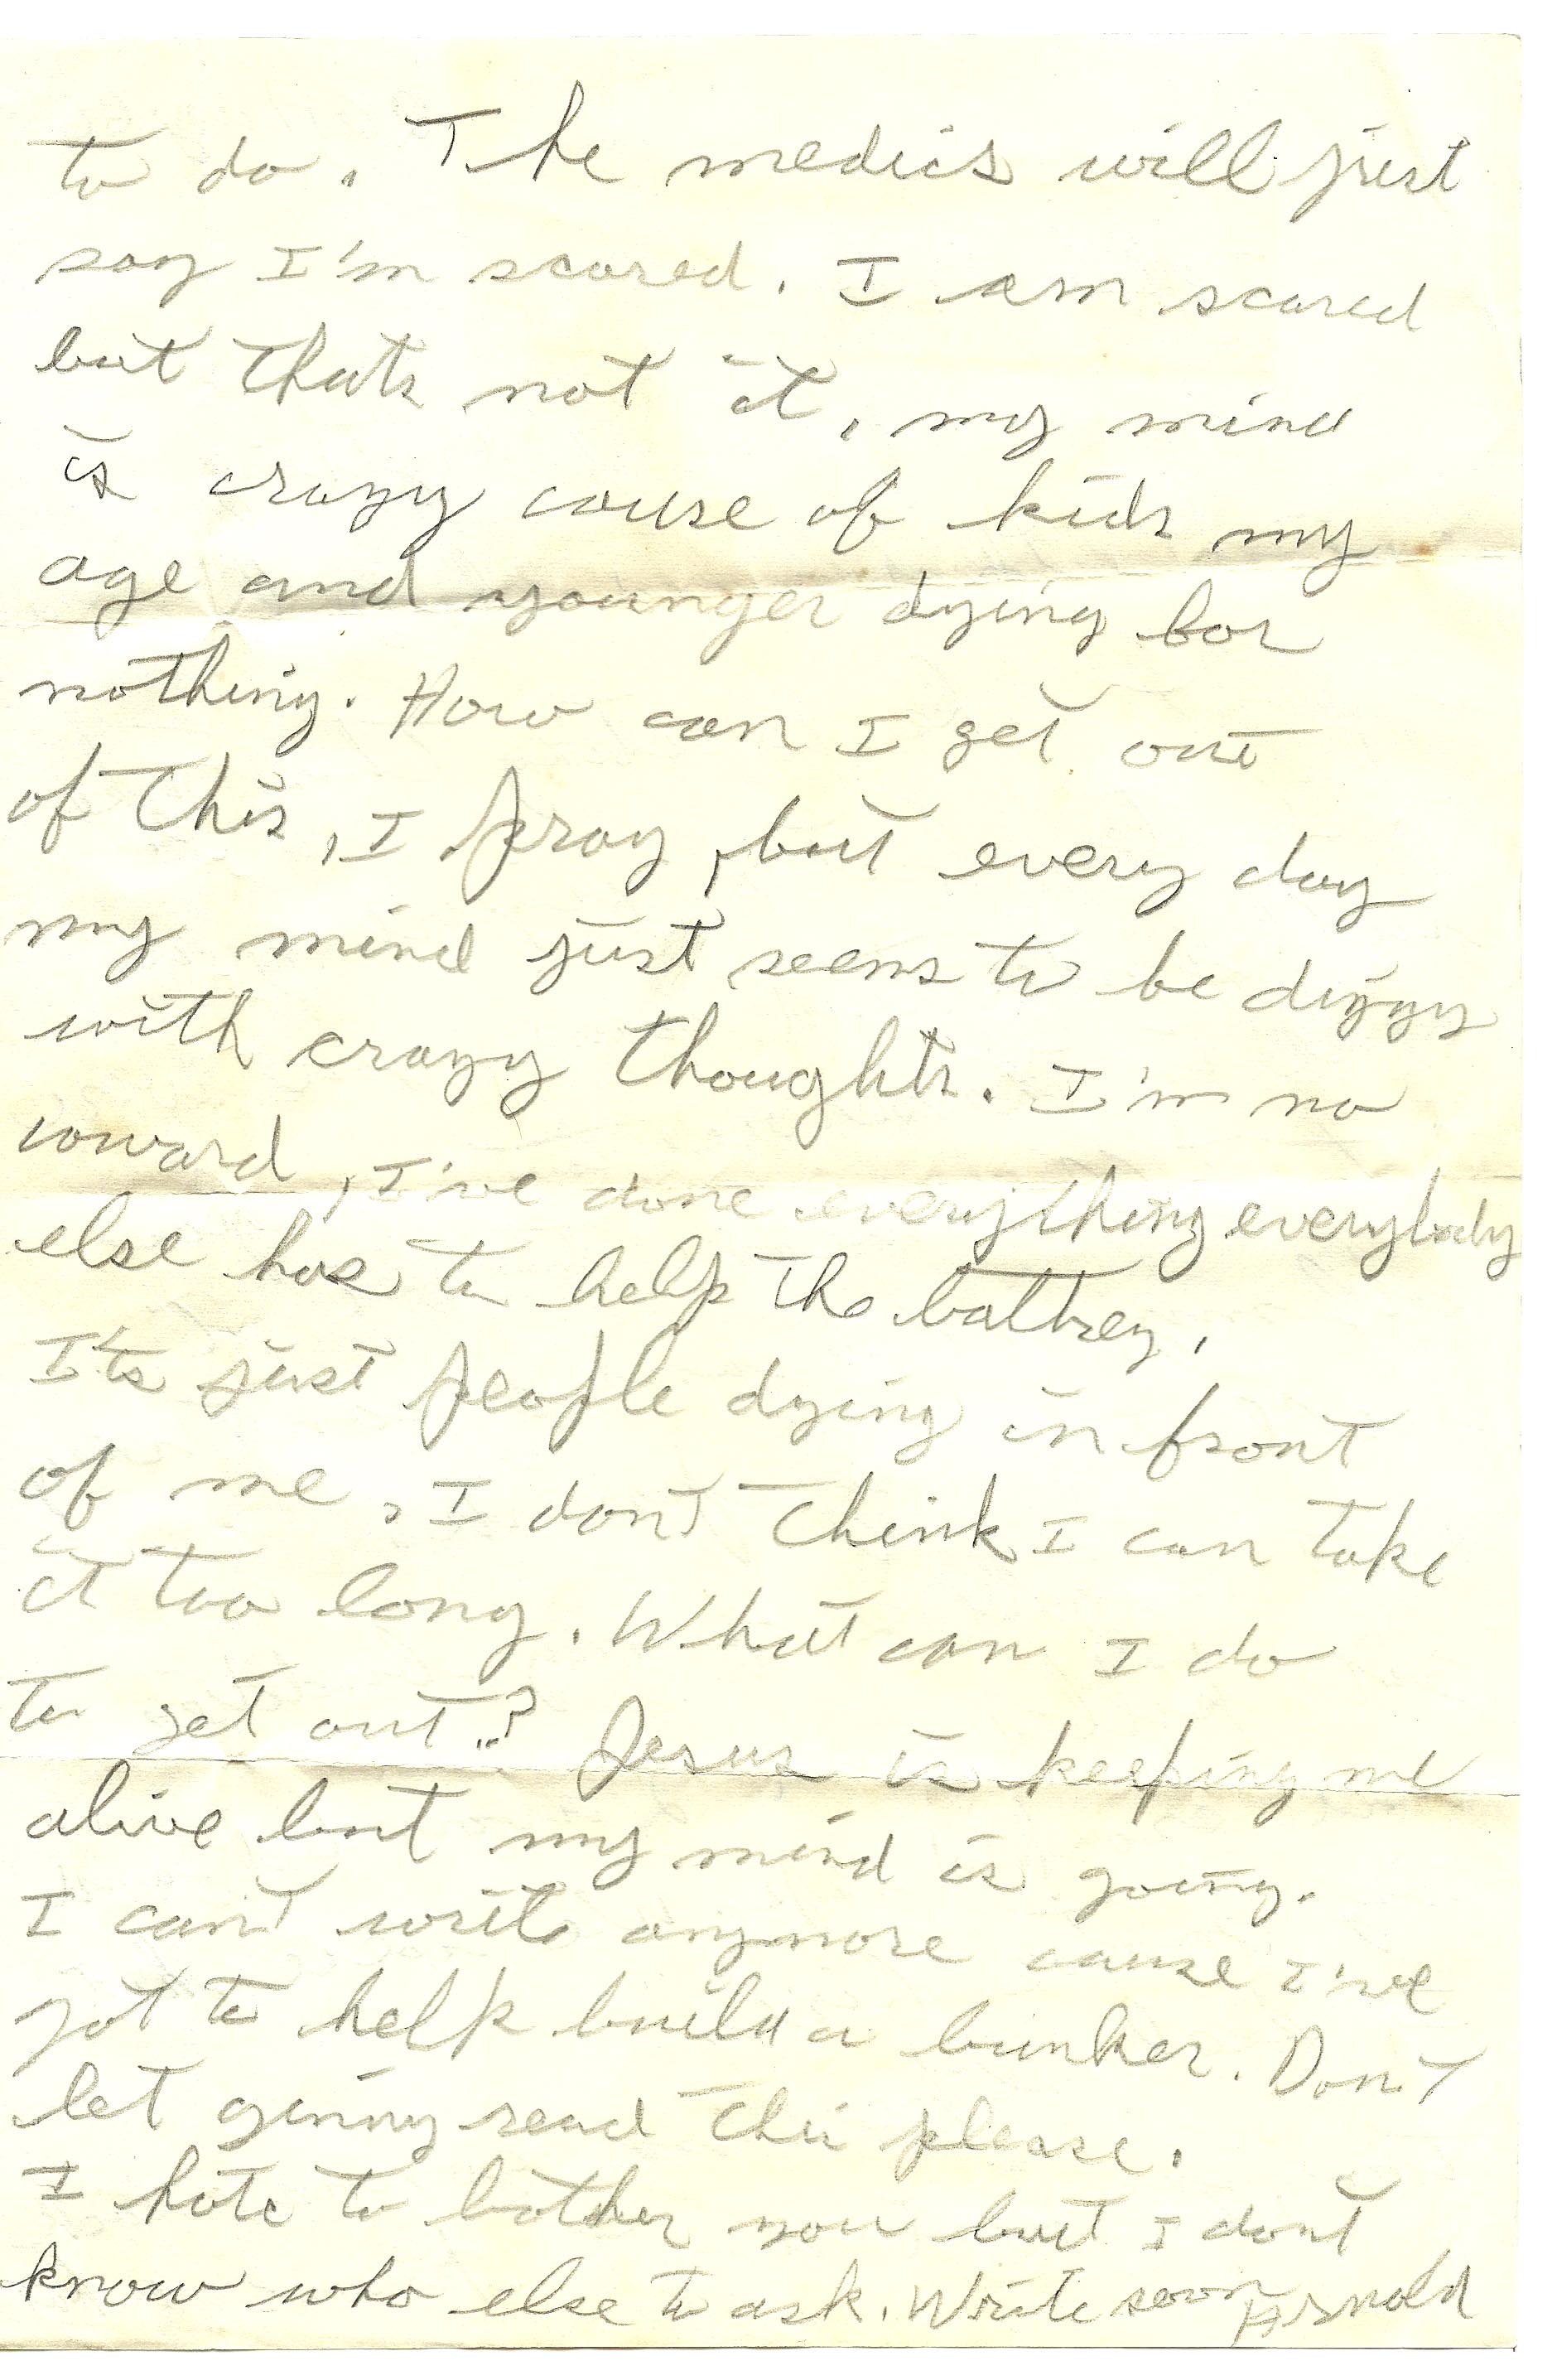 to do. The medics will just
say I'm scared. I am scared
but thats not it, my mind
is crazy couse of kids my
age and younger dying for
nothing. How can I get out
of this, I pray, but every day
my mind just seems to be dizzy
with crazy thoughts. I'm no
coward, I've done everything everybody
else has to help the battrey.
It's just people dying in front
of me, I don't think I can take
it too long. What can I do
to get out..? Jesus is keeping me
alive but my mind is going.
I can't write anymore cause I've
got to help build a bunker. Don't
let ginny read this please.
I hate to bother you but I don't
know who else to ask. Write soon Arnold